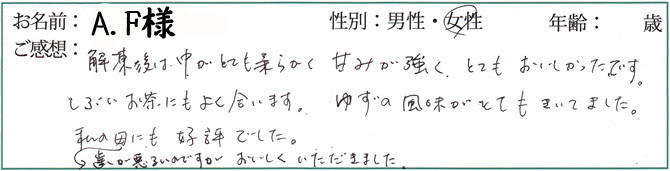 お名前： A.F様 性別：男性・女性 年齢： 歳
ご感想： 解凍後は、中がとても柔らかく 甘みが強く、とても おいしかったです。
しぶいお茶にもよく合います。 ゆずの風味がとてもきいてました。
私の母にも 好評でした。
歯が悪るいのですが おいしく いただきました。